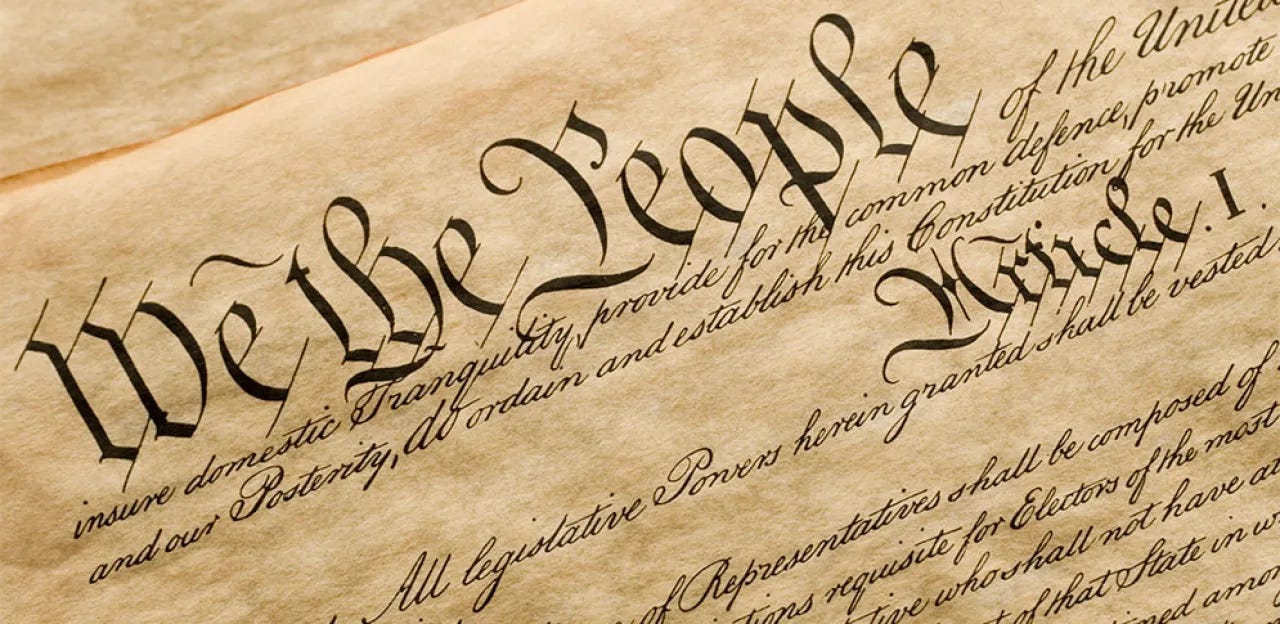 We the People of the United
insure domestic Tranquility, provide for the common defence, promote
and our Posterity, do ordain and establish this Constitution for the Un
Article. I.
All legislative Powers herein granted shall be vested
of Representatives shall be composed of
tions requisite for Electors of the most
tive who shall not have at
t of that State in w
ned among